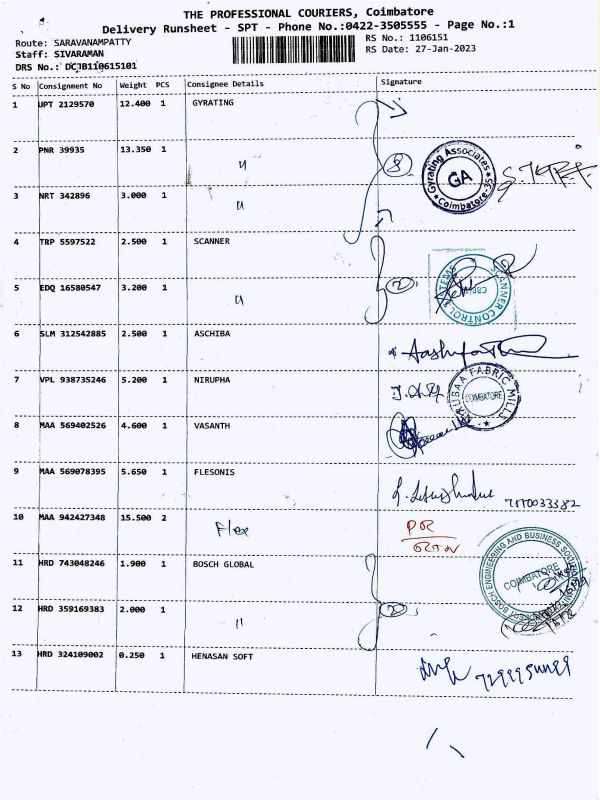 THE PROFESSIONAL COURIERS, Coimbatore
Delivery Runsheet - SPT - Phone No.:0422-3505555 - Page No.:1
Route: SARAVANAMPATTY
RS No.: 1106151
Staff: SIVARAMAN
RS Date: 27-Jan-2023
DRS No.: DCJB110615101
S No Consignment No Weight PCS Consignee Details Signature
1 UPT 2129570 12.400 1 GYRATING
2 PNR 39935 13.350 1 "
3 NRT 342896 3.000 1 "
Gyrating Associates
GA
Coimbatore-35
4 TRP 5597522 2.500 1 SCANNER
5 EDQ 16580547 3.200 1 "
SCANNER CONTROL
6 SLM 312542885 2.500 1 ASCHIBA
7 VPL 938735246 5.200 1 NIRUPHA
FABRIC MILLS
COIMBATORE
8 MAA 569402526 4.600 1 VASANTH
9 MAA 569078395 5.650 1 FLESONIS
7870033382
10 MAA 942427348 15.500 2 Flex
11 HRD 743048246 1.900 1 BOSCH GLOBAL
12 HRD 359169383 2.000 1 "
BOSCH ENGINEERING AND BUSINESS
COIMBATORE
13 HRD 324109002 0.250 1 HENASAN SOFT